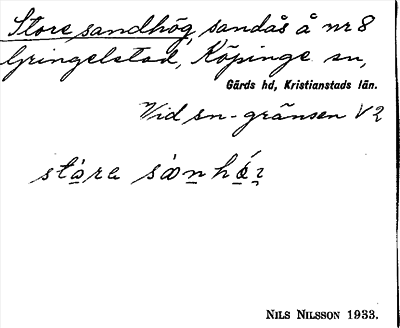 Store sandhög, sandås å nr 8
Gringelstad, Köpinge sn,
Gärds hd, Kristianstads län.
Vid sn-gränsen V2
NILS NILSSON 1933.